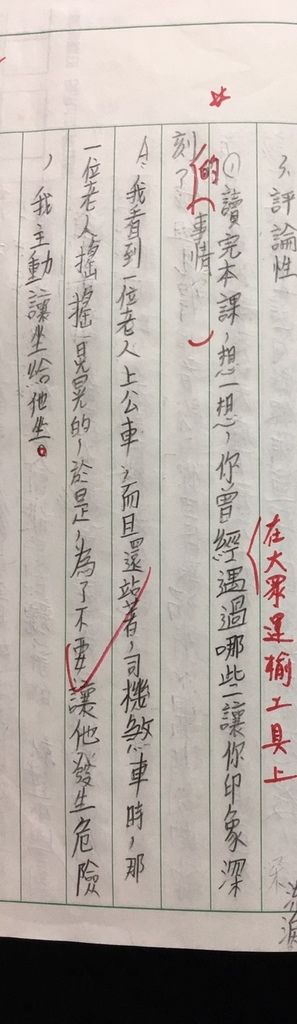 3、評論性
①讀完本課，想一想，你曾經遇過哪些讓你印象深
在大眾運輸工具上
刻的事情
A：我看到一位老人上公車，而且還站著，司機煞車時，那
一位老人搖搖晃晃的，於是，為了不要讓他發生危險
，我主動讓坐給他坐。